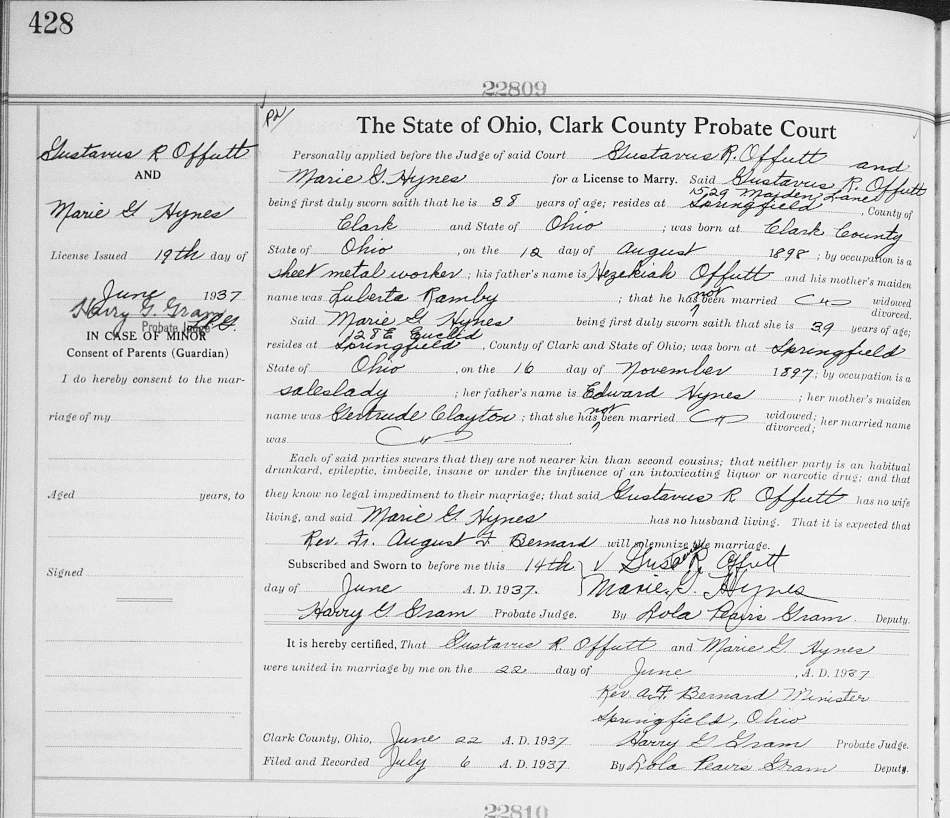 428
22809
P2/
The State of Ohio, Clark County Probate Court
Gustavus R Offutt
AND
Marie G Hynes
License Issued 19th day of
June 1937
Harry G. Gram
Probate Judge
IN CASE OF MINOR
Consent of Parents (Guardian)
I do hereby consent to the mar-
riage of my
Aged years, to
Signed
Personally applied before the Judge of said Court Gustavus R. Offutt and
Marie G. Hynes for a License to Marry. Said Gustavus R. Offutt
1529 Maiden Lane
being first duly sworn saith that he is 38 years of age; resides at Springfield, County of
Clark and State of Ohio; was born at Clark County
State of Ohio, on the 12 day of August 1898; by occupation is a
sheet metal worker; his father's name is Hezekiah Offutt and his mother's maiden
name was Luberta Ramby; that he has not been married widowed
divorced.
Said Marie G Hynes being first duly sworn saith that she is 39 years of age;
128 E Euclid
resides at Springfield, County of Clark and State of Ohio; was born at Springfield
State of Ohio, on the 16 day of November 1897; by occupation is a
saleslady; her father's name is Edward Hynes; her mother's maiden
name was Gertrude Clayton; that she has not been married widowed; her married name
divorced;
was
Each of said parties swears that they are not nearer kin than second cousins; that neither party is an habitual
drunkard, epileptic, imbecile, insane or under the influence of an intoxicating liquor or narcotic drug; and that
they know no legal impediment to their marriage; that said Gustavus R Offutt has no wife
living, and said Marie G. Hynes has no husband living. That it is expected that
Rev. Fr. August F Bernard will solemnize the marriage.
Subscribed and Sworn to before me this 14th √ Gustavus R Offutt
day of June A. D. 1937. Marie G. Hynes
Harry G Gram Probate Judge. By Lola Pearis Gram. Deputy.
It is hereby certified, That Gustavus R. Offutt and Marie G. Hynes
were united in marriage by me on the 22 day of June, A. D. 1937
Rev A.F. Bernard Minister
Springfield, Ohio
Clark County, Ohio, June 22 A. D. 1937 Harry G Gram Probate Judge.
Filed and Recorded July 6 A. D. 1937. By Lola Pearis Gram Deputy.
22810